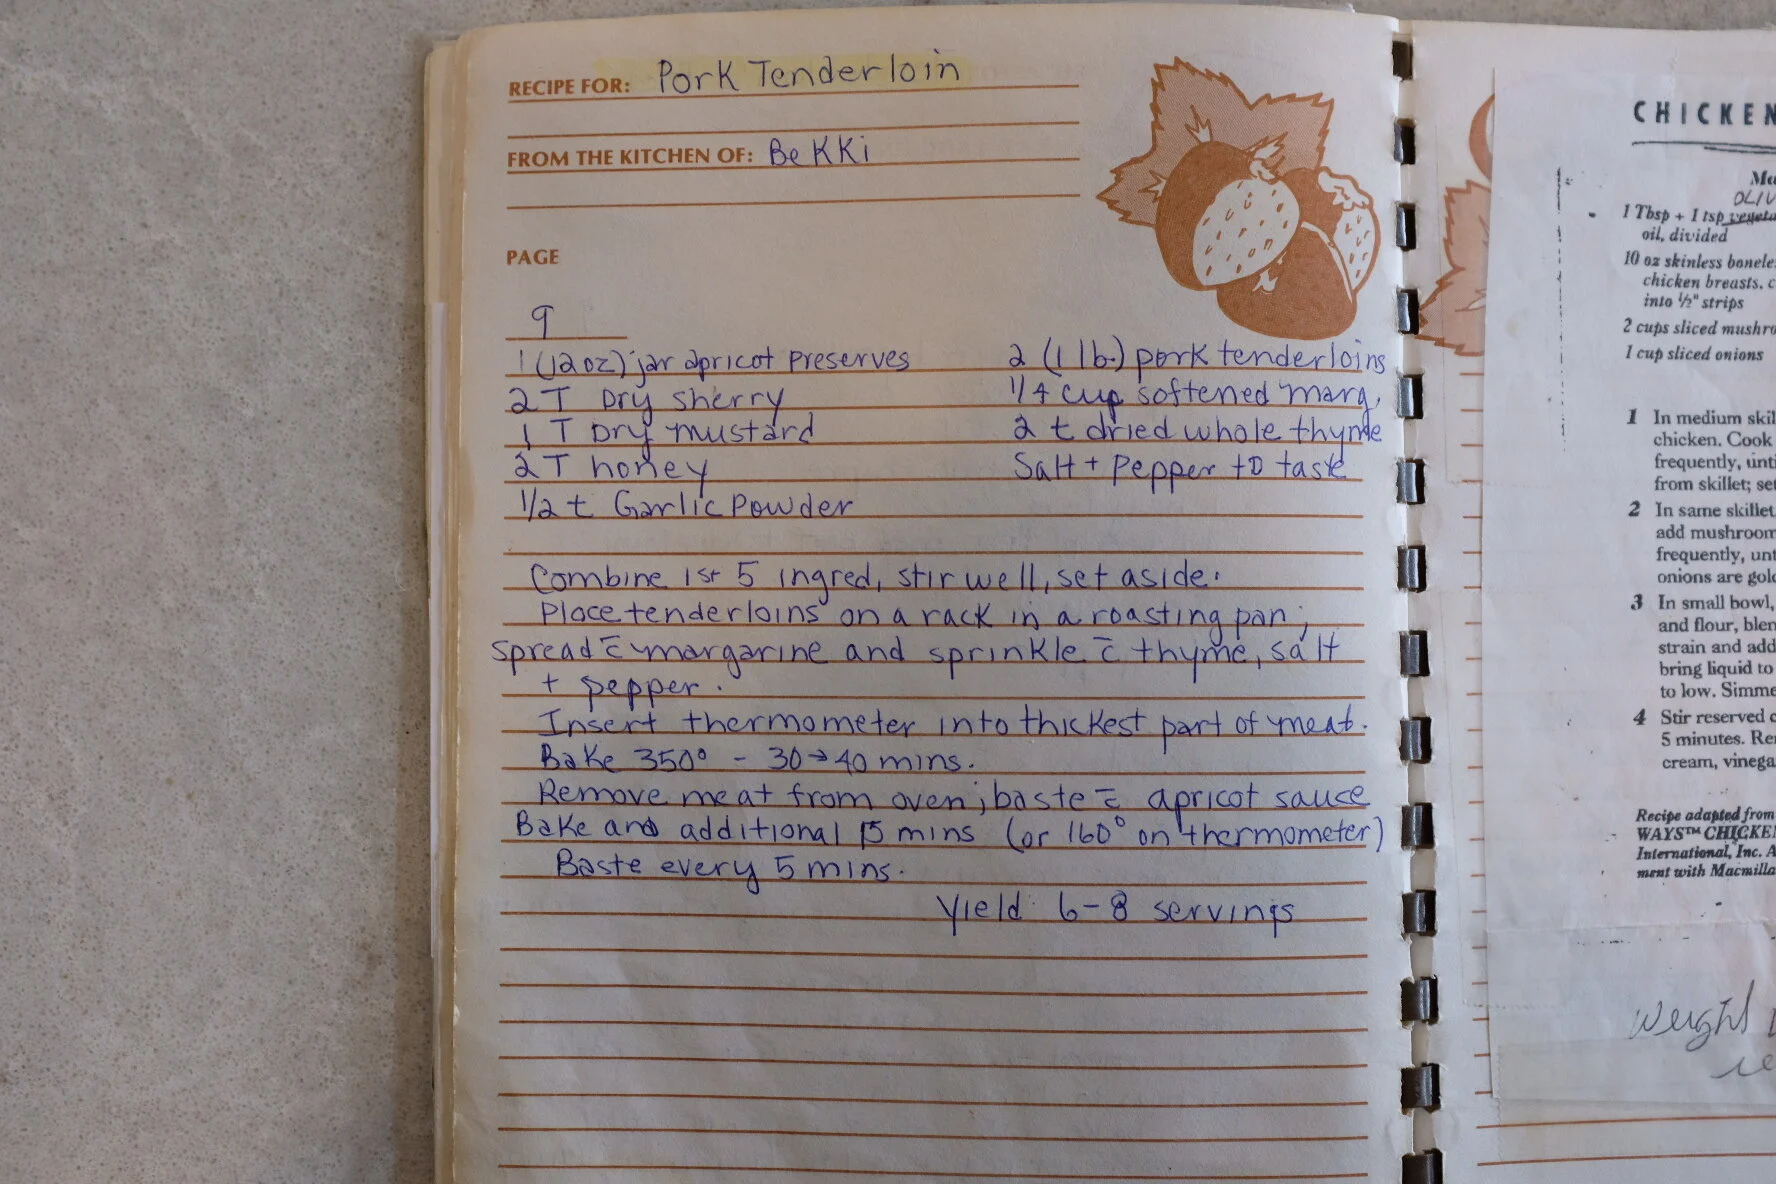 RECIPE FOR: Pork Tenderloin
FROM THE KITCHEN OF: BeKKi
PAGE
9
1 (12 oz) jar apricot preserves
2 T Dry sherry
1 T Dry mustard
2 T honey
1/2 t Garlic Powder
2 (1 lb.) pork tenderloins
1/4 cup softened marg.
2 t dried whole thyme
Salt + Pepper to taste
Combine 1st 5 ingred, stir well, set aside.
Place tenderloins on a rack in a roasting pan;
spread c̄ margarine and sprinkle c̄ thyme, salt
+ pepper.
Insert thermometer into thickest part of meat.
Bake 350° - 30→40 mins.
Remove meat from oven; baste c̄ apricot sauce
Bake and additional 15 mins (or 160° on thermometer)
Baste every 5 mins.
Yield 6-8 servings
CHICKEN
OLIV
1 Tbsp + 1 tsp vegeta
oil, divided
10 oz skinless bonele
chicken breasts, c
into ½" strips
2 cups sliced mushro
1 cup sliced onions
1 In medium skil
chicken. Cook
frequently, unti
from skillet; set
2 In same skillet,
add mushroom
frequently, unt
onions are gold
3 In small bowl,
and flour, blen
strain and add
bring liquid to
to low. Simme
4 Stir reserved c
5 minutes. Re
cream, vinega
Recipe adapted from
WAYS™ CHICKE
International, Inc. A
ment with Macmilla
Weight